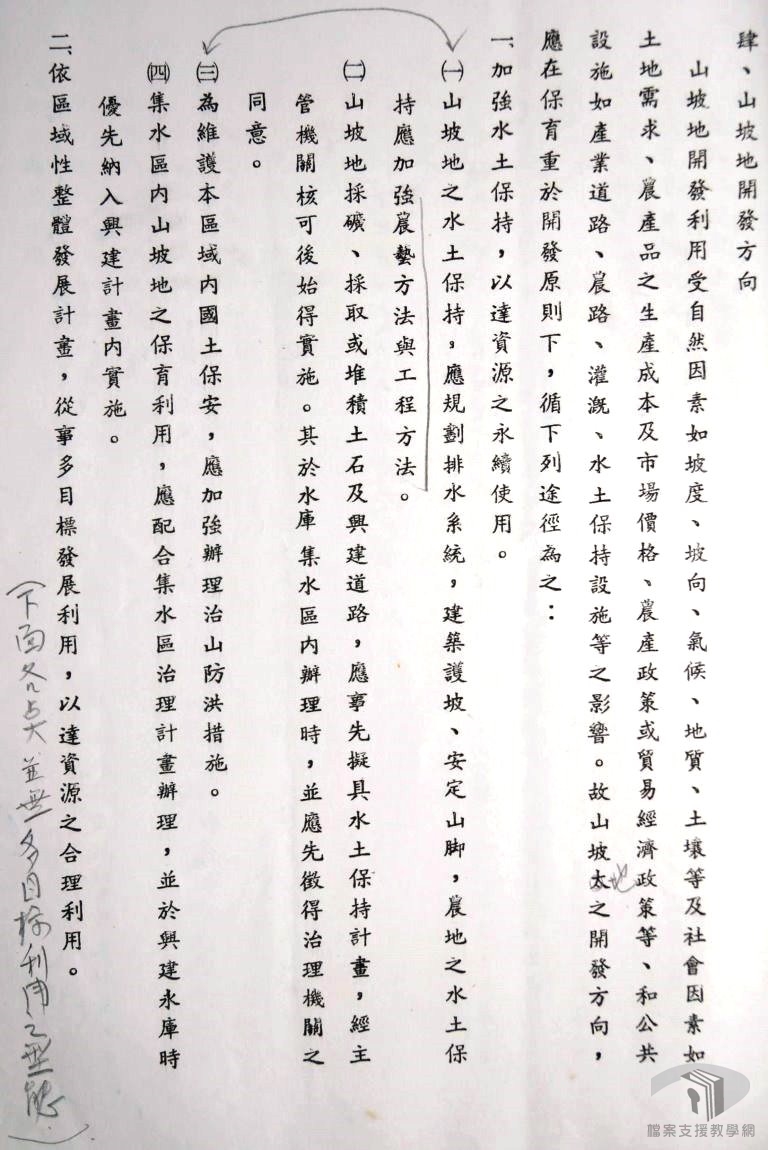 肆、山坡地開發方向
山坡地開發利用受自然因素如坡度、坡向、氣候、地質、土壤等及社會因素如
土地需求、農產品之生產成本及市場價格、農產政策或貿易經濟政策等、和公共
設施如產業道路、農路、灌溉、水土保持設施等之影響。故山坡太之開發方向，
地
應在保育重於開發原則下，循下列途徑為之：
一、加強水土保持，以達資源之永續使用。
㈠山坡地之水土保持，應規劃排水系統，建築護坡、安定山腳，農地之水土保
持應加強農藝方法與工程方法。
㈡山坡地採礦、採取或堆積土石及興建道路，應事先擬具水土保持計畫，經主
管機關核可後始得實施。其於水庫集水區內辦理時，並應先徵得治理機關之
同意。
㈢為維護本區域內國土保安，應加強辦理治山防洪措施。
㈣集水區內山坡地之保育利用，應配合集水區治理計畫辦理，並於興建水庫時
優先納入興建計畫內實施。
二、依區域性整體發展計畫，從事多目標發展利用，以達資源之合理利用。
(下面各點並無多目標利用之型態)
檔案支援教學網